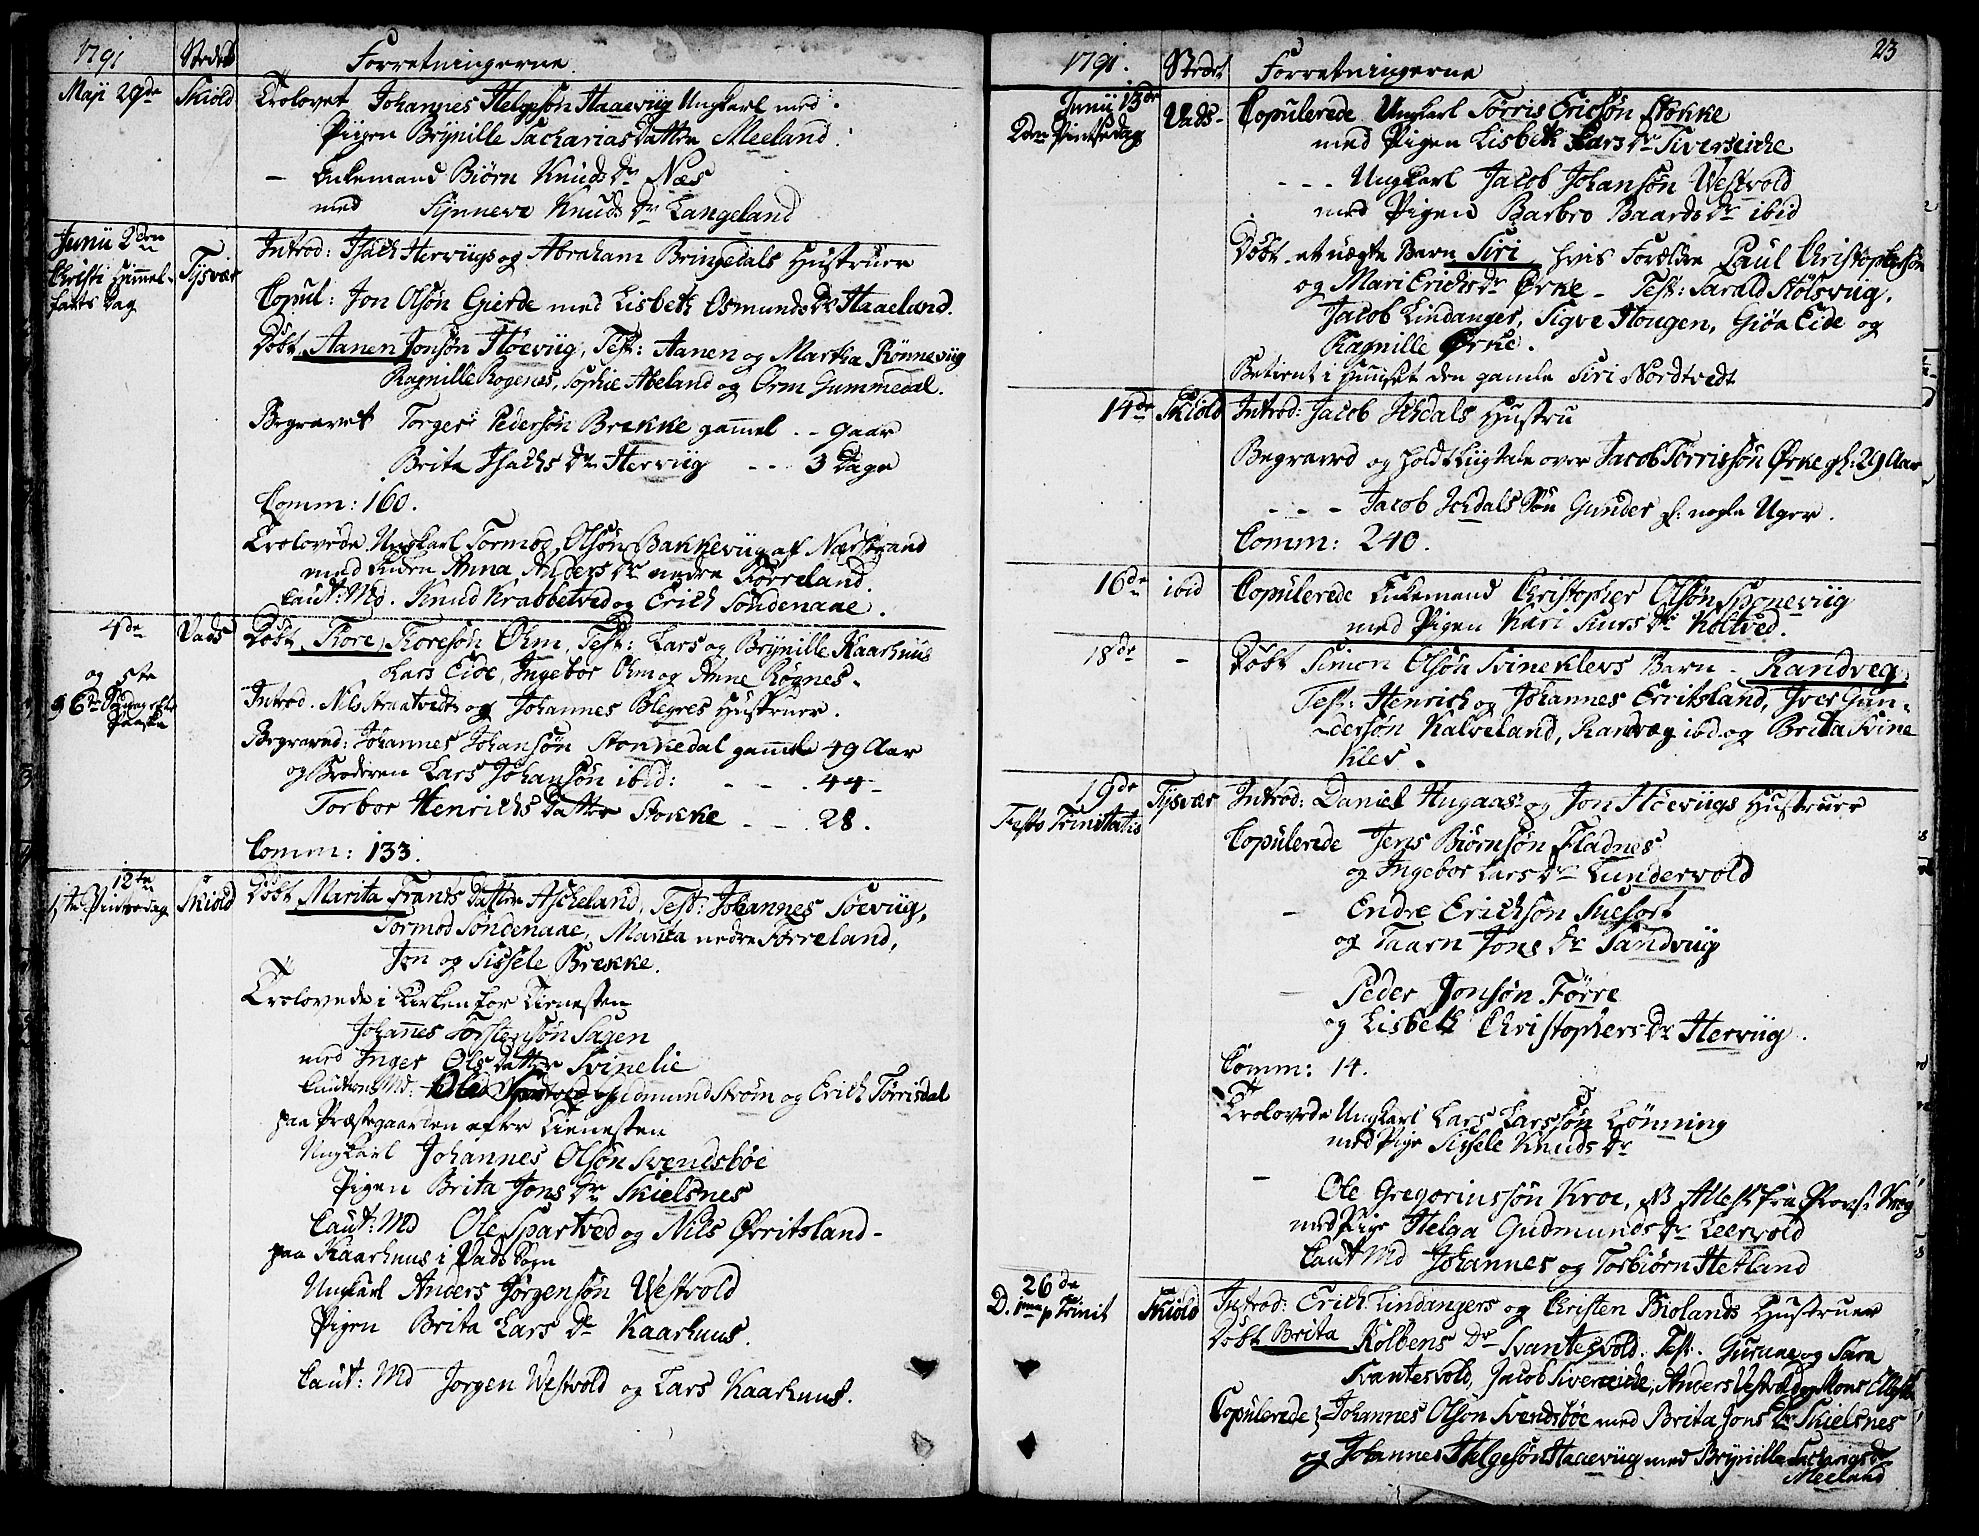 1791 Stedet Forretningerne
Maji 29de Skiold Trolovet Johannes Helgesøn Haaeviig Ungkarl med
Piigen Brynille Sacharias Datter Meeland
- Enkemand Biørn Knuds Dr Næs
med Synneve Knuds Dr Langeland
Junii 2den Christi Himmel-farts Dag Tysvær Introd: Isach Herviigs og Abraham Bringedals Hustruer
Copul: Jon Olsøn Gierde med Lisbeth Osmunds Dr Haaeland.
Døbt Aanen Jonsøn Høeviig, Test: Aanen og Martha Rønneviig
Ragnille Rogenes, Sophie Abeland og Orm Gummedal.
Begravet Torger Pedersøn Brekke gammel - - 9 aar
Brita Isachs Dr Herviig - - - 3 Dage
Comm: 160.
Trolovede Ungkarl Tormod Olsøn Bakkeviig af Nærstrand
med Enken Anna Anders Dr nedre Førreland.
Caut: Md. Knud Krabbetved og Erich Søndenaae.
4de Vads Døbt Tore Toresøn Ohm, Test: Lars og Brynille Kaarhuus
Lars Eide, Ingebor Ohm og Anne Røgnes.
og 5te
Introd. Nils Straatvedts og Johannes Blegres Hustruer.
6te Søndag efter Paaske
Begraved: Johannes Johansøn Stonkedal gammel 49 Aar
og Broderen Lars Johansøn ibid: - - - 44 -
Torbor Henrichs Datter Stokke - - - 28.
Comm: 133.
12te 1te Pintzedag Skiold Døbt Marita Frants Datter Ascheland, Test: Johannes Soeviig,
Tormod Søndenaae, Marita nedre Førreland,
Jon og Sissele Brekke.
Trolovede i Kirken for Tienesten
Johannes Torstensøn Sagen
med Inger Ols Datter Svinelie
Cautions Md: Gudmund Strøm og Erich Tørrisdal
paa Præstegaarden efter Tienesten
Ungkarl Johannes Olsøn Svendsbøe
Pigen Brita Jons Dr Skielsnes
Caut: Md Ole Spartved og Nils Øvritsland -
paa Kaarhuus i Vads Sogn
Ungkarl Anders Jørgensøn Westvold
Pigen Brita Lars Dr Kaarhuus.
Caut: Md Jorgen Westvold og Lars Kaarhuus.
23
1791. Stedet Forretningerne
Junii 13de 2den Pintsedag Vads - Copulerede Ungkarl Tørris Ericsøn Stokke
med Pigen Lisbeth Lars Dr Siverseiche
- - - Ungkarl Jacob Johansøn Westvold
med Pigen Barbro Baards Dr ibid
Døbt et uægte Barn Siri hvis Forældre Paul Christophersøn
og Mari Erichs Dr Ørke - Test: Sarald Stølsviig,
Jacob Lindanger, Sigve Hougen, Giøa Eide og
Ragnille Ørke.
Betient i Huuset den gamle Siri Nordtvedt
14de Skiold Introd: Jacob Ichdals Hustru
Begraved og holdt Liigtale over Jacob Tørrissøn Ørke gl: 29 Aar
- - - Jacob Ichdals Søn Gunder gl: nogle Uger.
Comm: 240.
16de ibid Copulerede Enkemand Christopher Olsøn Sponeviig
med Pigen Kari Siurs Dr Koltved.
18de - Døbt Simon Olsøn Svineklevs Barn - Randveg,
Test: Henrich og Johannes Erritsland, Iver Gun-
dersøn Kalveland, Randveg ibid. og Brita Svine
klev.
19de Festo Trinitatis Tysvær Introd: Daniel Hugaas og Jon Høeviigs Hustruer
Copulerede Jens Biørnsøn Fladnes
og Ingebor Lars Dr Lundervold
- Endre Erichsøn Skefort
og Taarn Jons Dr Sandviig
- Peder Jonsøn Førre
og Lisbeth Christophers Dr Herviig.
Comm: 14.
Trolovede Ungkarl Lars Larssøn Lønning
med Pige Sissele Knuds Dr
- Ole Gregoriussøn Kroe, NB Attest fra
med Pige Helga Gudmunds Dr Leervold
Caut Md Johannes og Torbiørn Hetland
26de D. 1ma p Trinit Skiold Introd: Erich Lindangers og Christen Biolands Hustruer
Døbt Brita Kolbens Dr Svantesvold. Test. Gurune og Sara
Svantesvold, Jacob Sivereide, Anders Vestvold og Mons
Copulerede Johannes Olsøn Svendsbøe med Brita Jons Dr Skielsnes
og Johannes Helgesøn Haaeviig med Brynille Sacharias Dr
Meeland